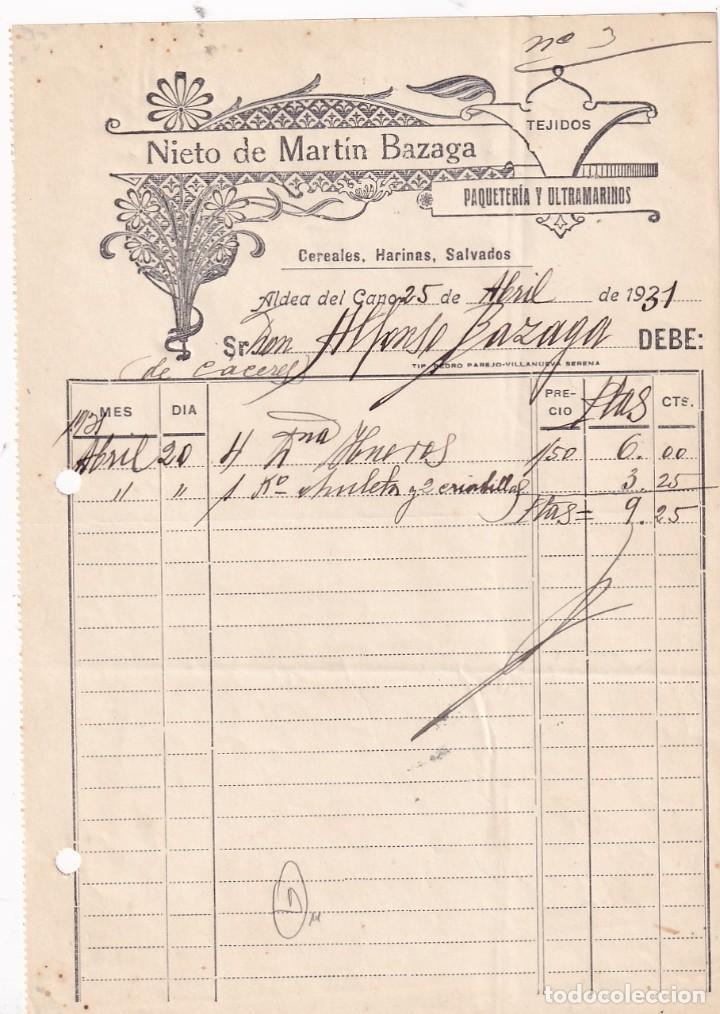 nº 3
TEJIDOS
Nieto de Martín Bazaga
PAQUETERÍA Y ULTRAMARINOS
Cereales, Harinas, Salvados
Aldea del Cano 25 de Abril de 1931
Sr Don Alfonso Bazaga DEBE:
(de Caceres)
TIP. PEDRO PAREJO-VILLANUEVA SERENA
MES DIA PRECIO Ptas CTS.
1931
Abril 20 4 Dna Huevos 1/50 6. 00
" " 1 Ko chuleta y 2 criadillas 3. 25
Ptas = 9. 25
todocoleccion